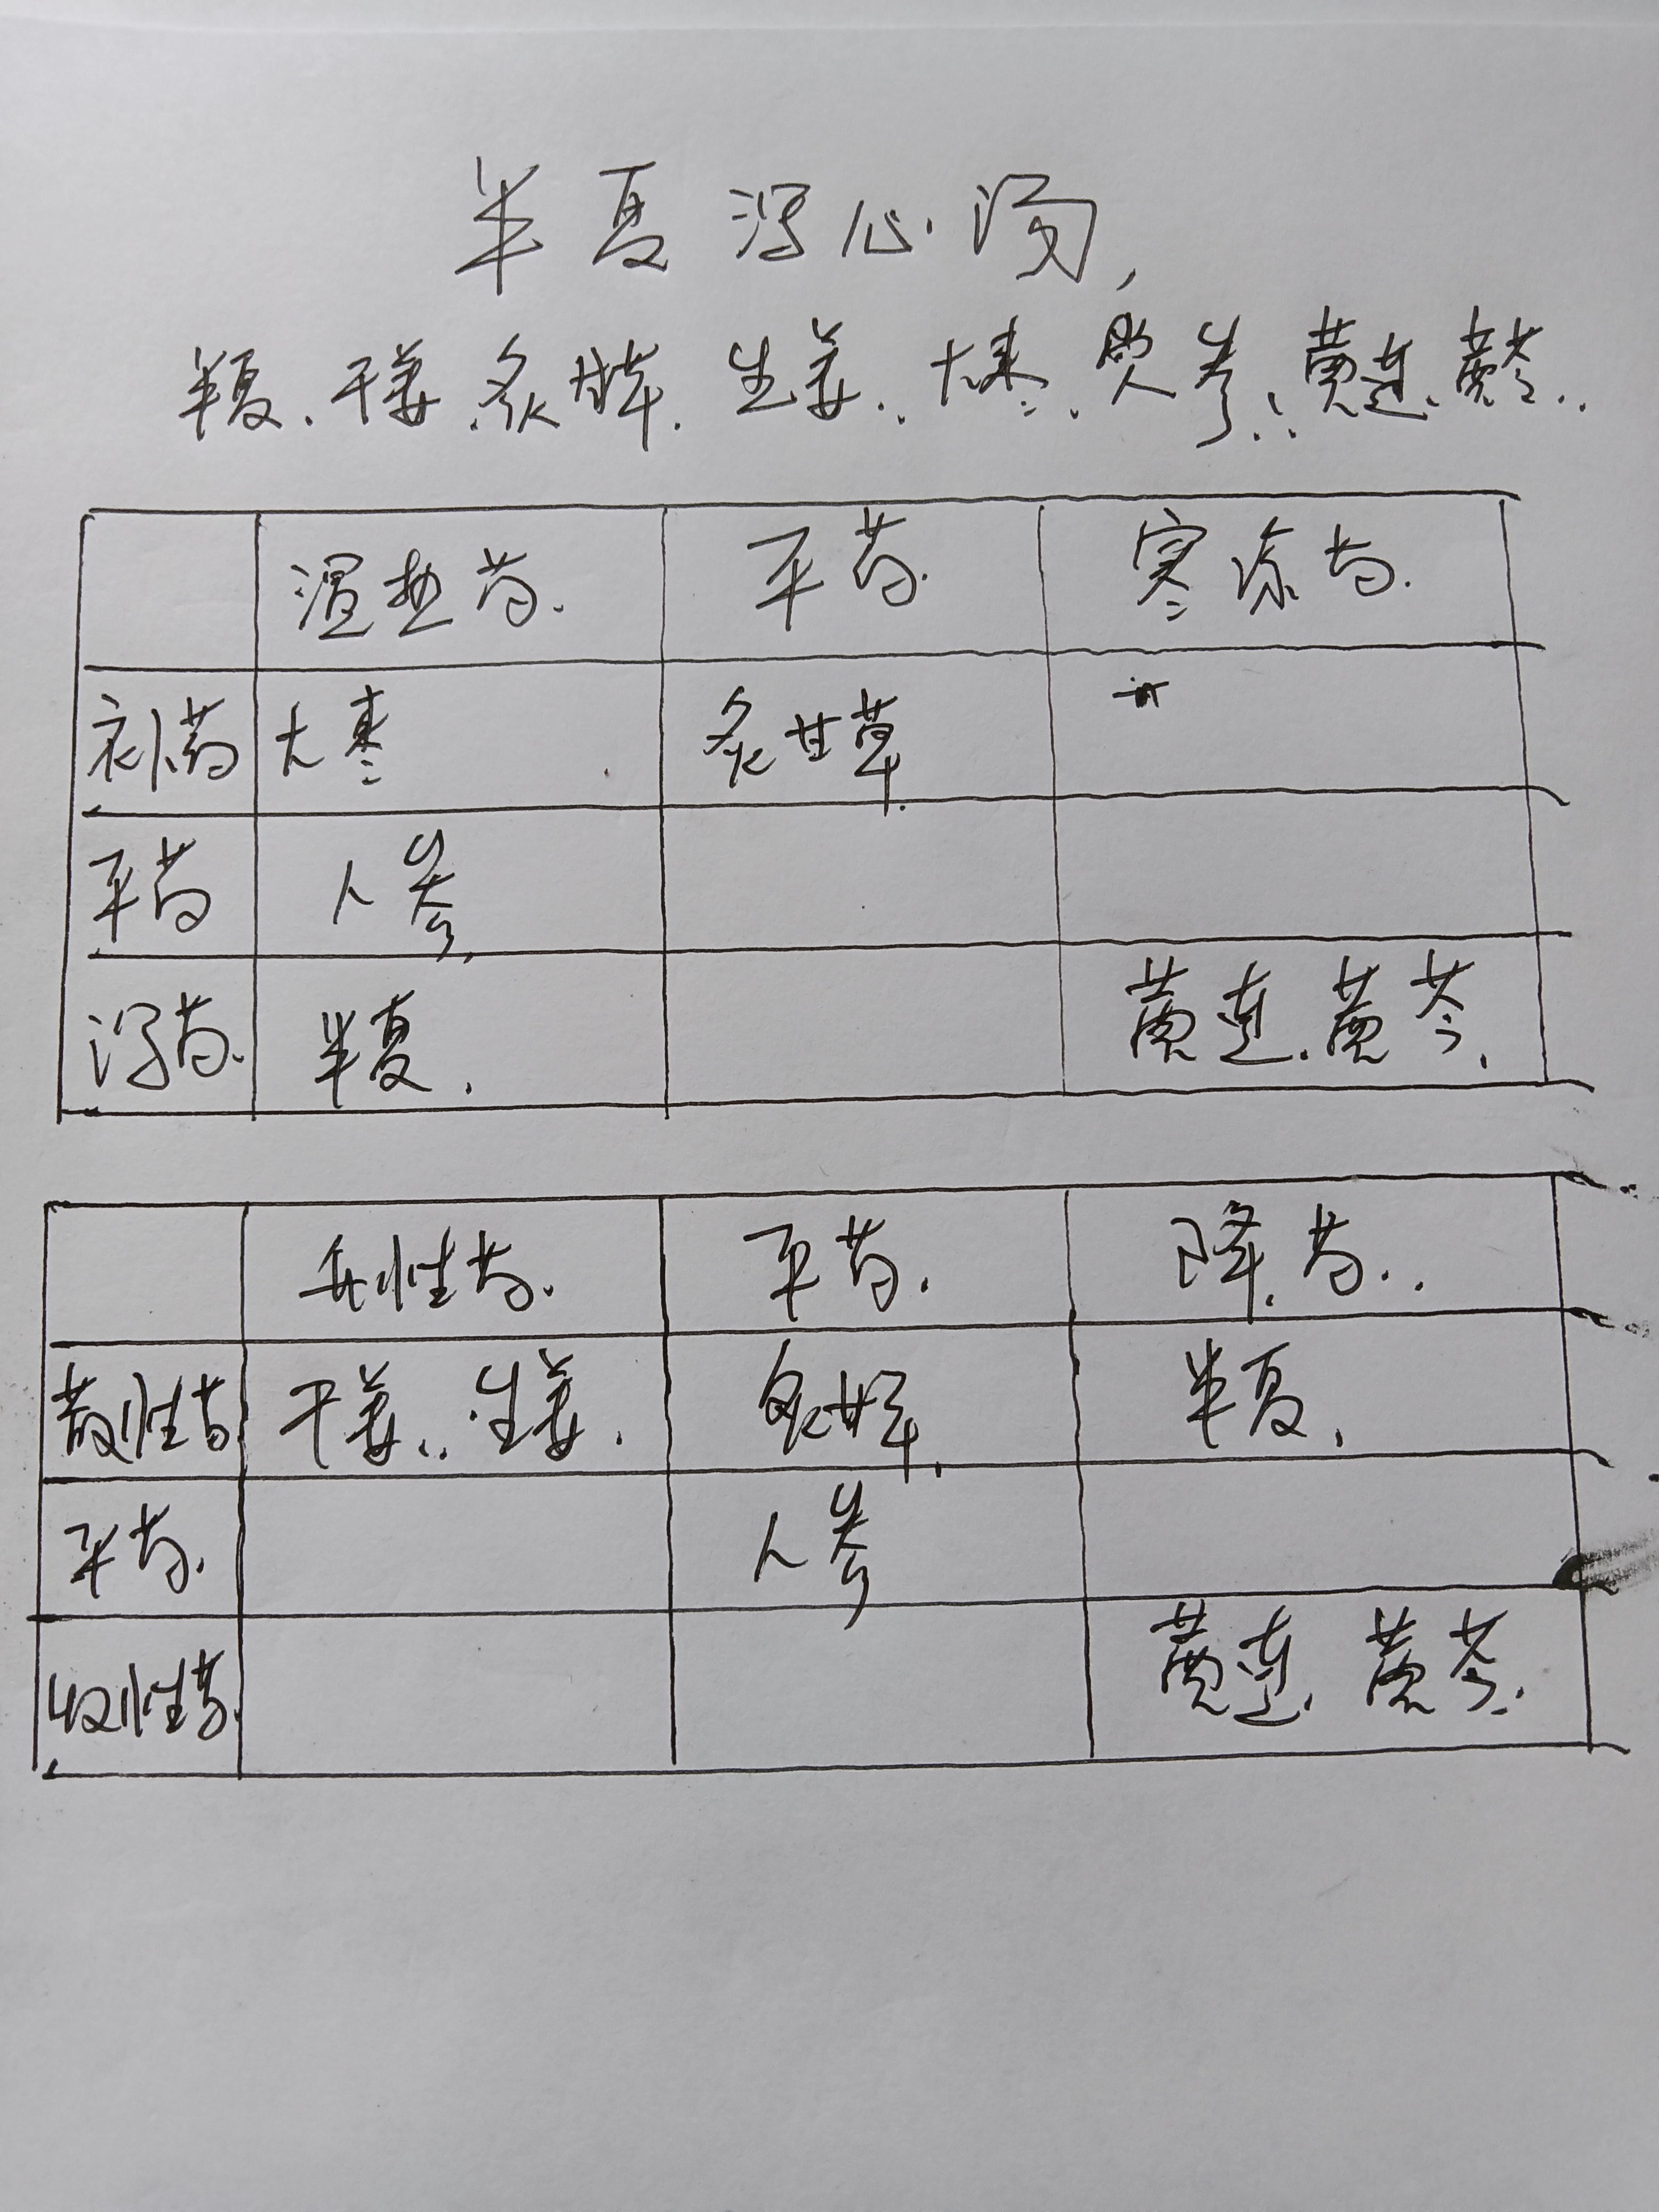 半夏泻心汤,
半夏、干姜、炙甘草、生姜、大枣、人参、黄连、黄芩..
温热药. 平药. 寒凉药.
补药 大枣 炙甘草.
平药 人参.
泻药. 半夏. 黄连. 黄芩.
升性药. 平药. 降药..
散性药 干姜.. 生姜. 炙甘草. 半夏.
平药. 人参
收性药. 黄连. 黄芩.